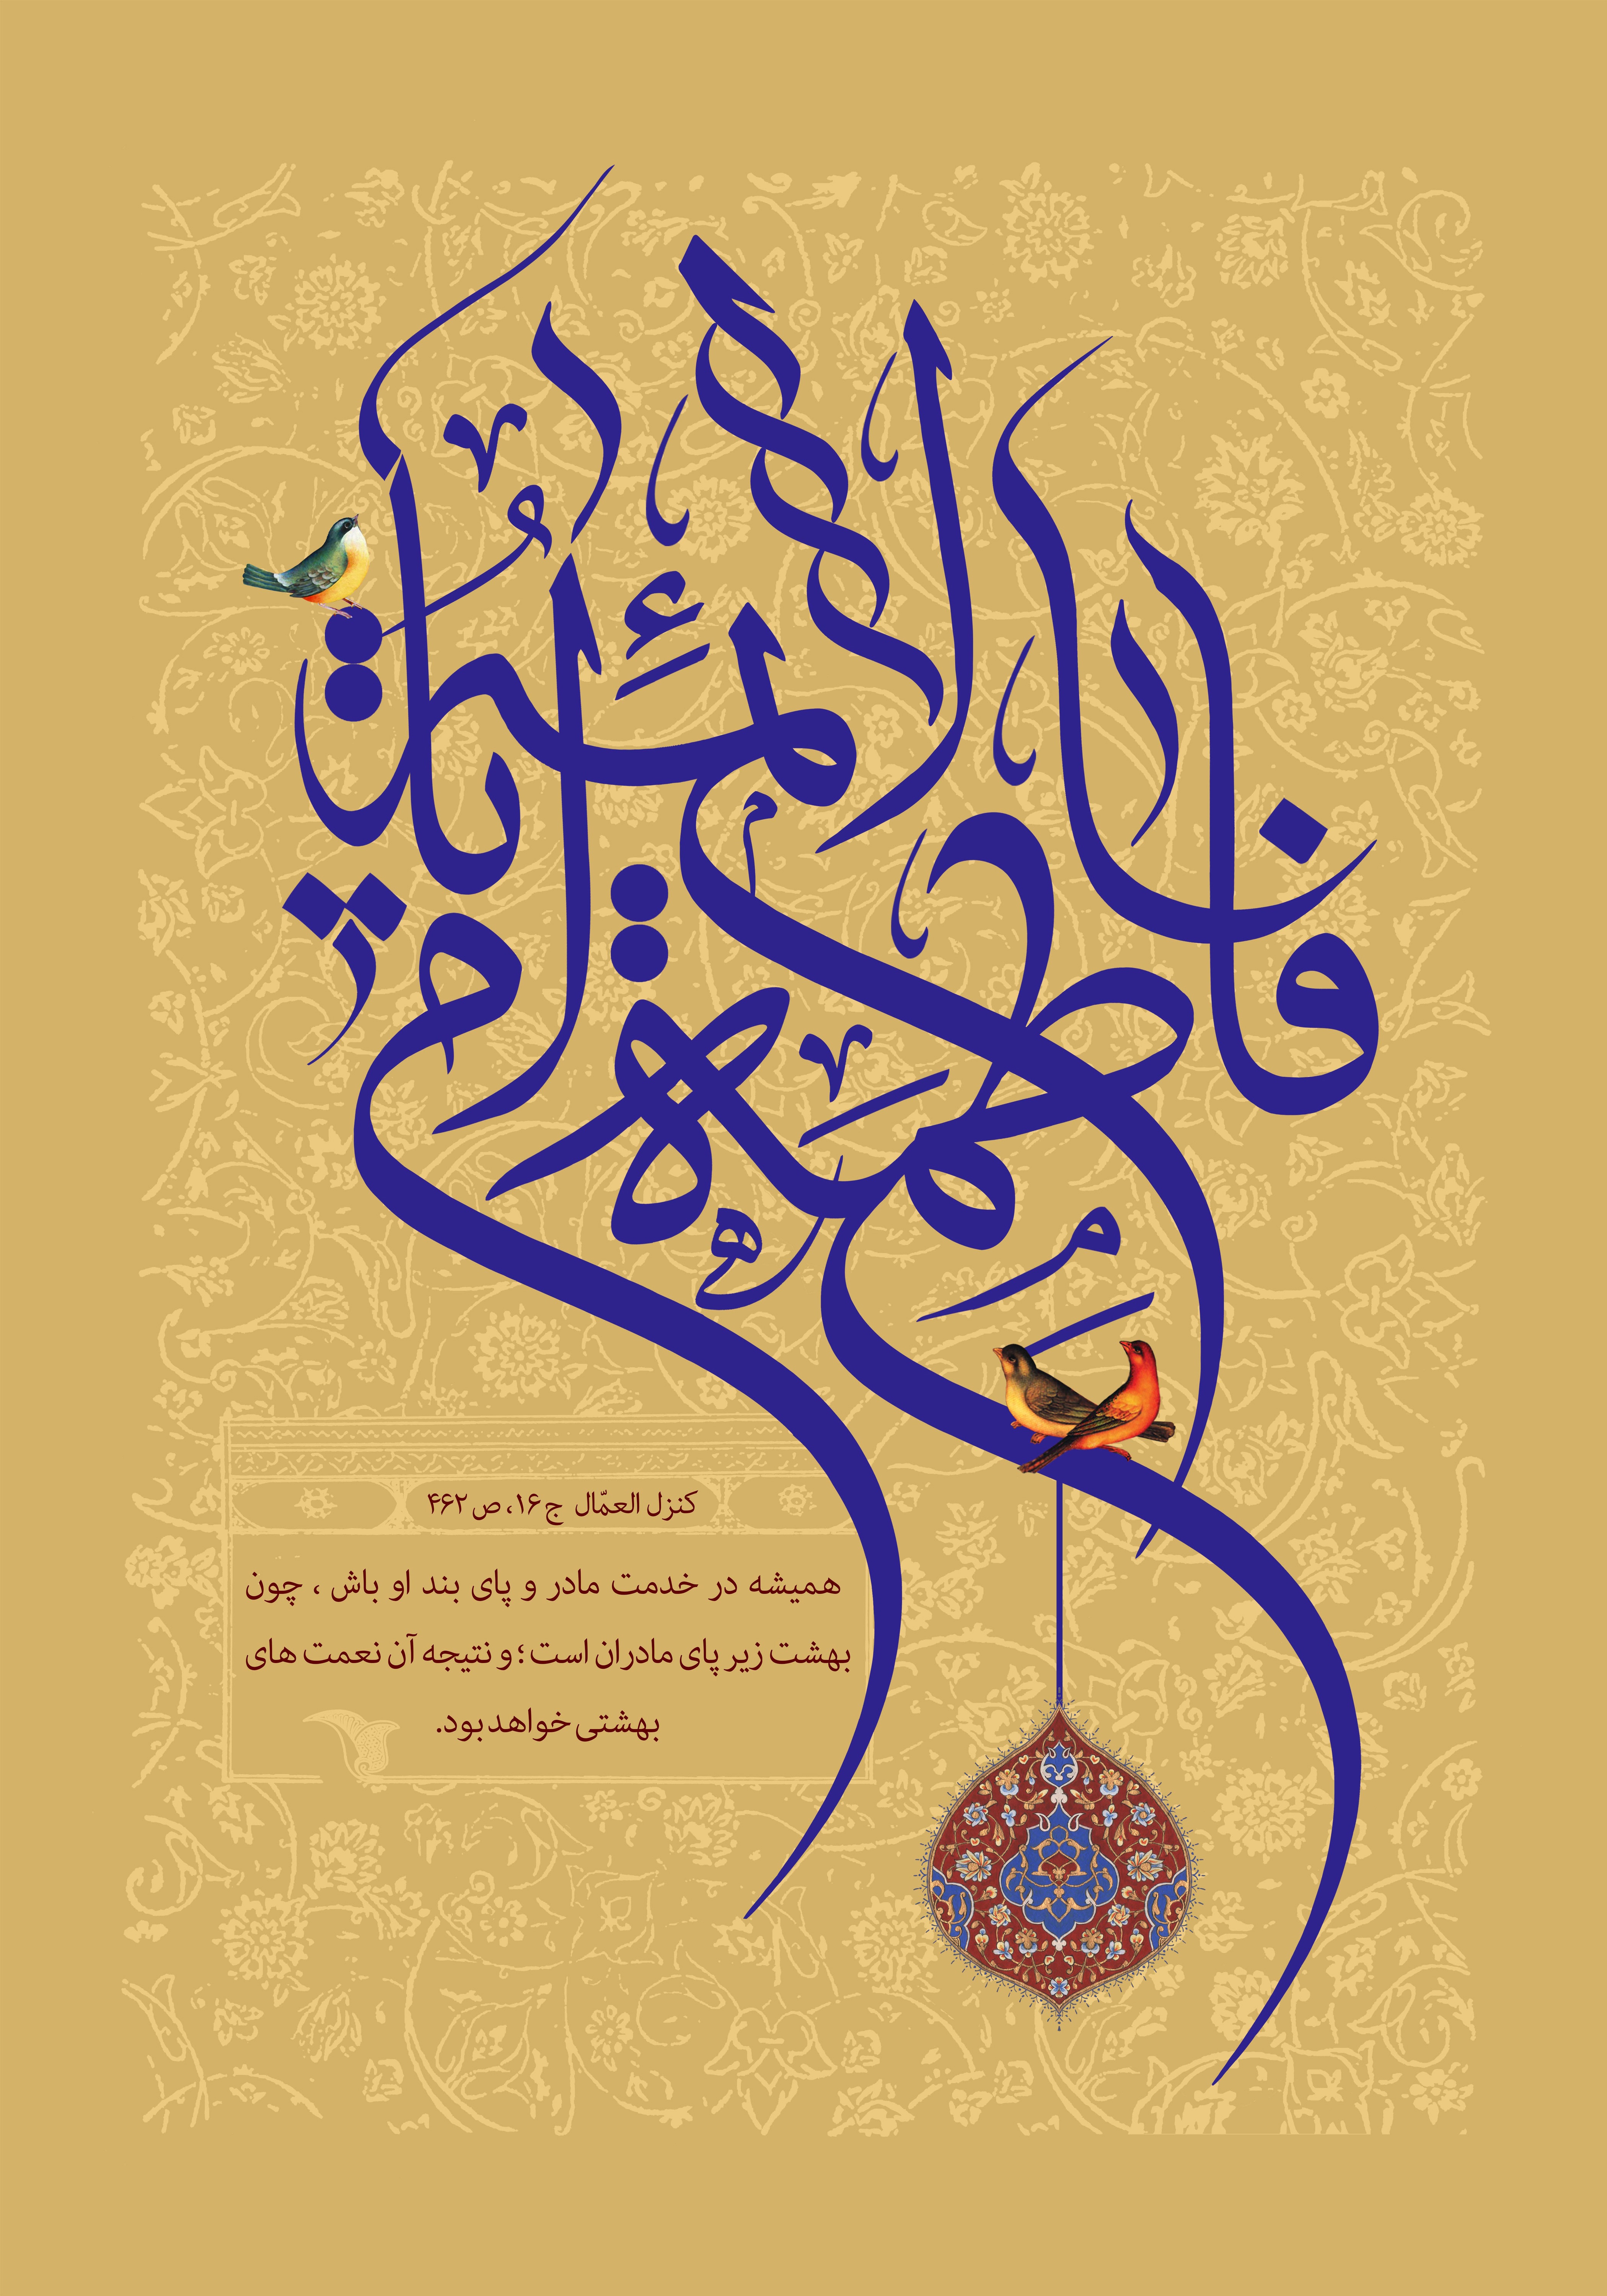 یا فاطمة ام الائمة
کنزل العمّال ج۱۶، ص۴۶۲
همیشه در خدمت مادر و پای بند او باش ، چون
بهشت زیر پای مادران است ؛ و نتیجه آن نعمت های
بهشتی خواهد بود.